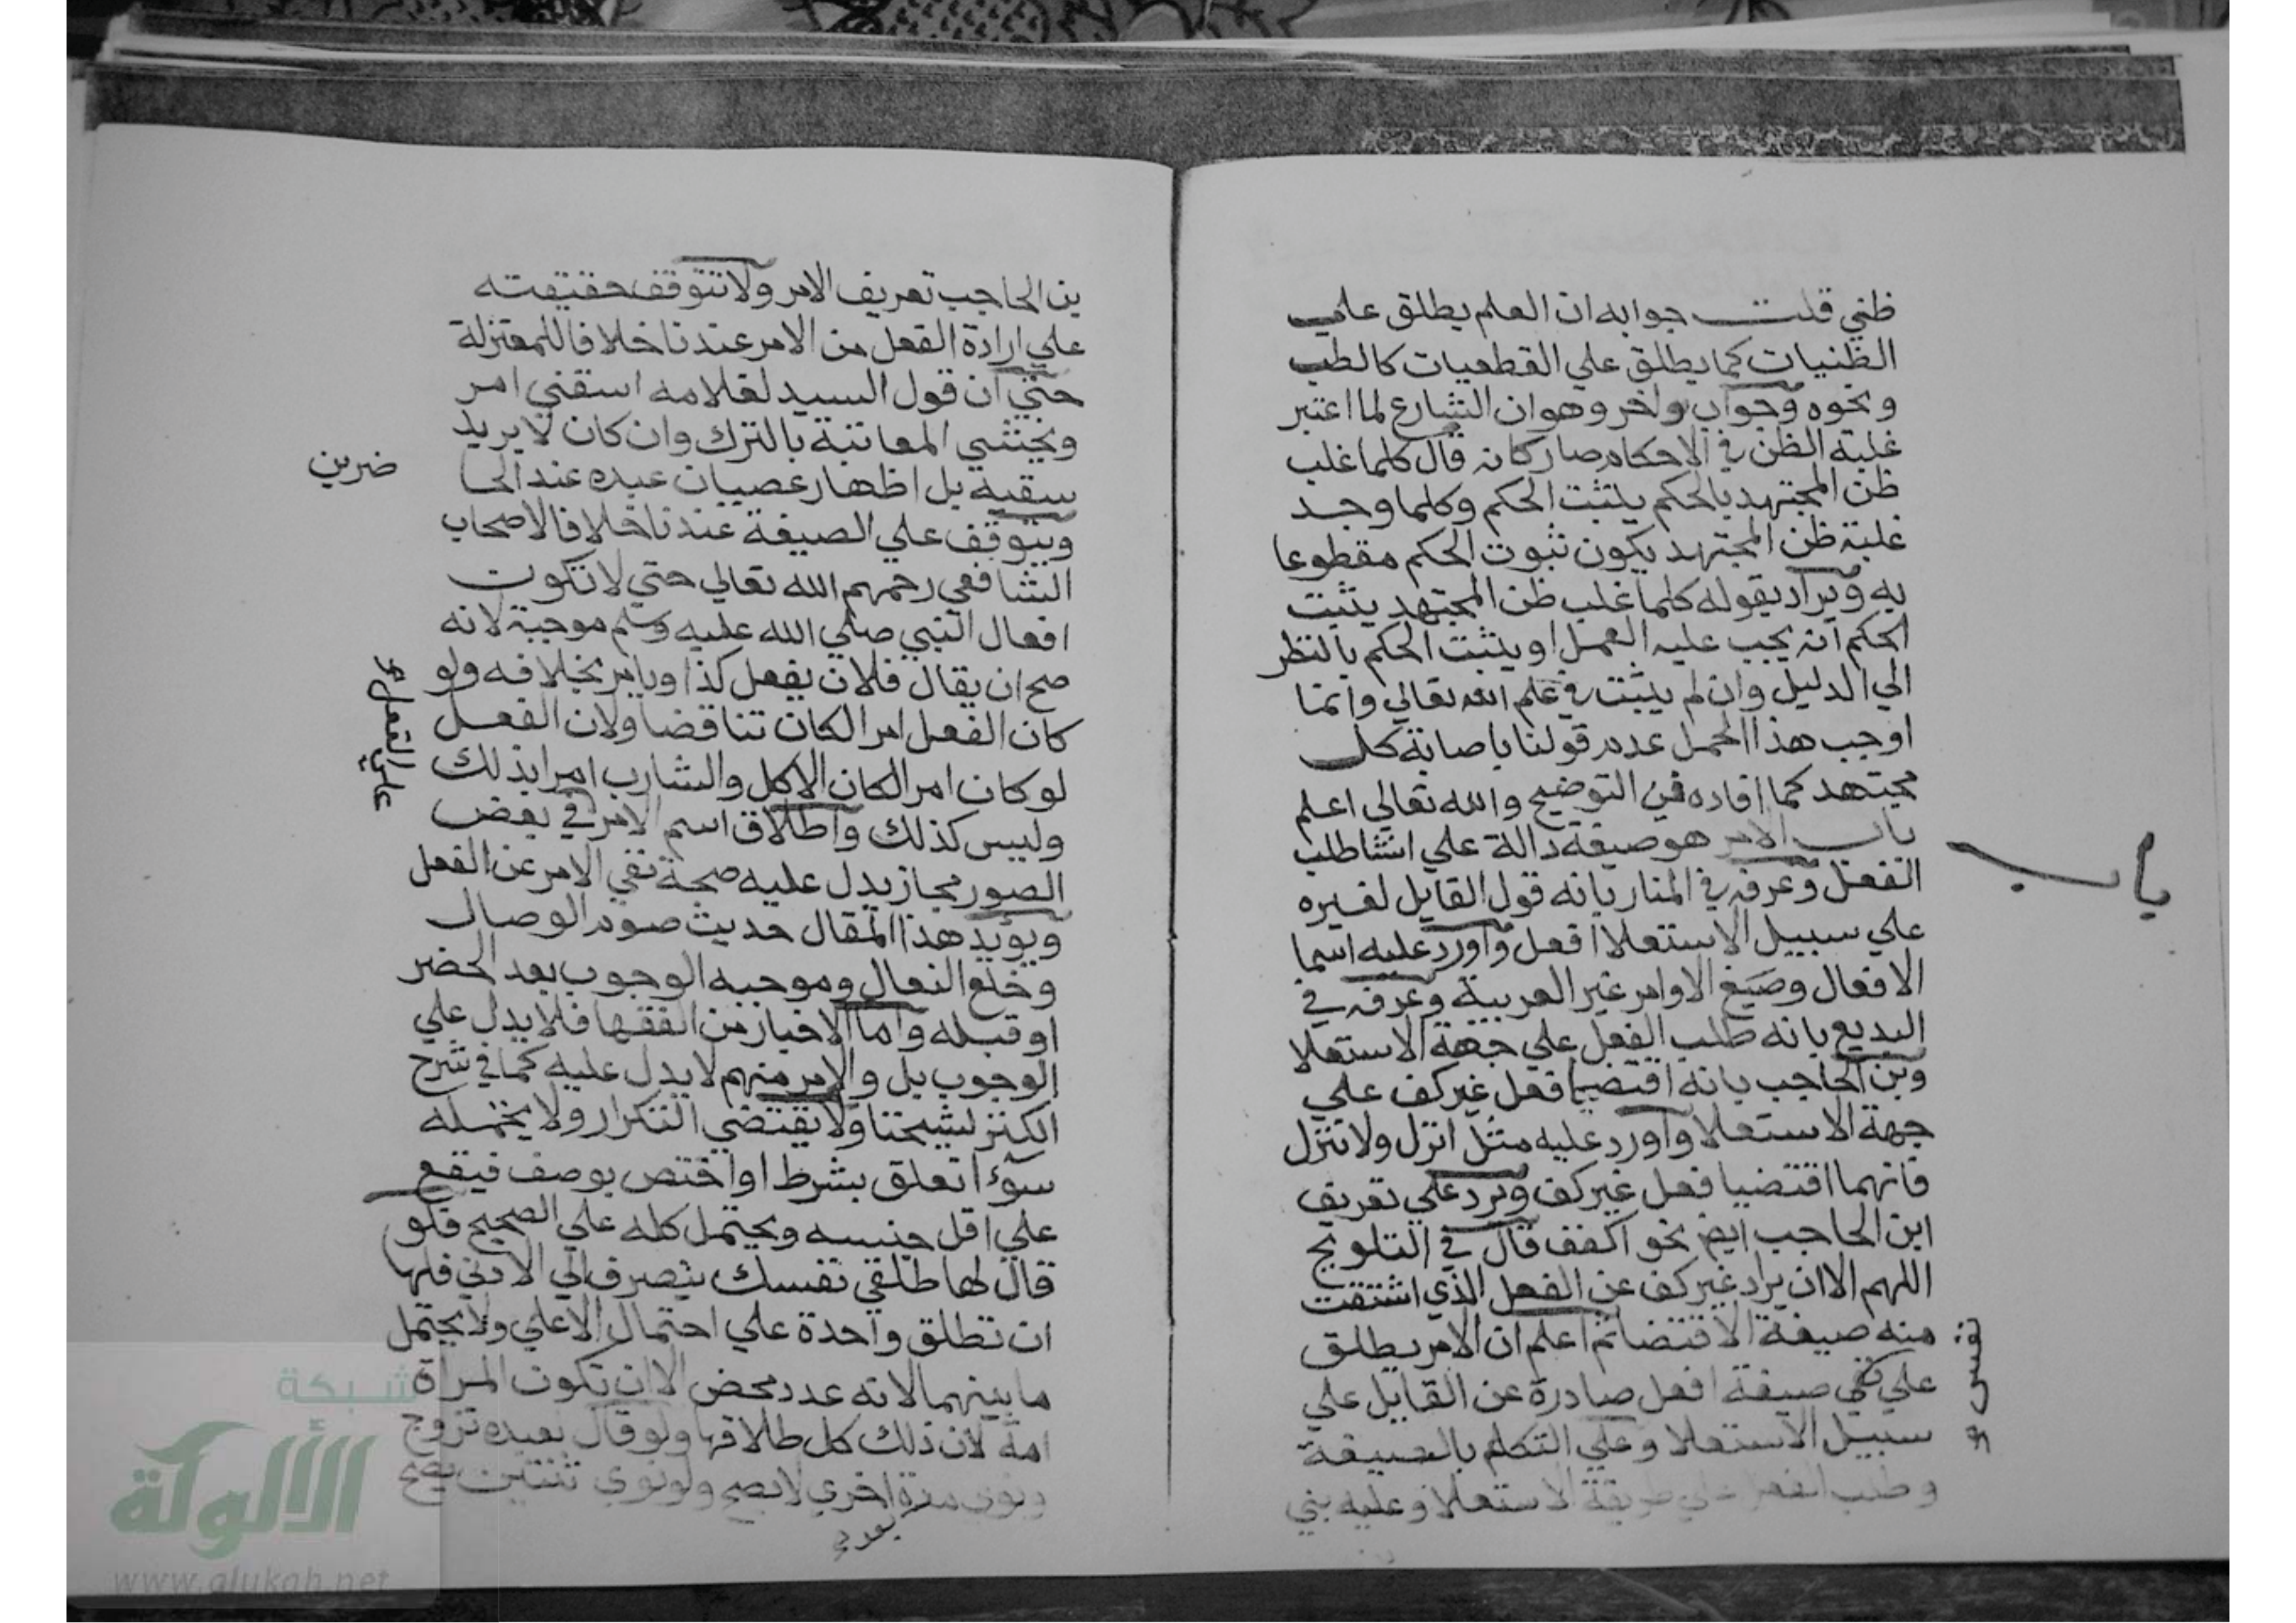 ظني قلت جوابه ان العلم يطلق علي
الظنيات كما يطلق علي القطعيات كالطب
ونحوه وجواب واخر وهو ان الشارع لما اعتبر
غلبة الظن في الاحكام صار كانه قال كلما غلب
ظن المجتهد بالحكم يثبت الحكم وكلما وجد
غلبة ظن المجتهد يكون ثبوت الحكم مقطوعا
به ويراد بقوله كلما غلب ظن المجتهد يثبت
الحكم انه يجب عليه العمل او يثبت الحكم بالنظر
الي الدليل وان لم يثبت في علم الله تعالي وانما
اوجب هذا الحمل عدم قولنا باصابة كل
مجتهد كما افاده في التوضيح والله تعالي اعلم
باب
باب الامر هو صيغة دالة علي انشا طلب
الفعل وعرفه في المنار بانه قول القايل لغيره
علي سبيل الاستعلا افعل واورد عليه اسما
الافعال وصيغ الاوامر غير العربية وعرفه في
البديع بانه طلب الفعل علي جهة الاستعلا
وبن الحاجب بانه اقتضا فعل غير كف علي
جهة الاستعلا واورد عليه مثل انزل ولا تنزل
فانهما اقتضيا فعل غير كف ويرد علي تعريف
ابن الحاجب ايضر نحو اكفف قال في التلويح
اللهم الا ان يراد غير كف عن الفعل الذي اشتقت
منه صيغة الاقتضا ثم اعلم ان الامر يطلق
علي صيغة افعل صادرة عن القايل علي
نفس
سبيل الاستعلا وعلي التكلم بالصيغة
وطلب الفعل علي طريقة الاستعلا وعليه بني
بن الحاجب تعريف الامر ولا تتوقف حقيقته
علي ارادة الفعل من الامر عندنا خلافا للمعتزلة
حتي ان قول السيد لغلامه اسقني امر
ويخشي المعاتبة بالترك وان كان لا يريد
سقيه بل اظهار عصيان عبده عند الحا
ضرين
ويتوقف علي الصيغة عندنا خلافا لاصحاب
الشافعي رحمهم الله تعالي حتي لا تكون
افعال النبي صلي الله عليه وسلم موجبة لانه
صح ان يقال فلان يفعل كذا ويامر بخلافه ولو
كان الفعل امرا لكان تناقضا ولان الفعل
لو كان امرا لكان الاكل والشارب امرا بذلك
وليس كذلك واطلاق اسم الامر في بعض
علي الفعل
الصور مجاز يدل عليه صحة نفي الامر عن الفعل
ويؤيد هذا المقال حديث صوم الوصال
وخلع النعال وموجبه الوجوب بعد الحضر
او قبله واما الاخبار من الفقها فلا يدل علي
الوجوب بل والامر منهم لا يدل عليه كما في شرح
الكنز لشيخنا ولا يقتضي التكرار ولا يحتمله
سوا تعلق بشرط او اختص بوصف فيقع
علي اقل جنسه ويحتمل كله علي الصحيح فلو
قال لها طلقي نفسك ينصرف الي الادني فلها
ان تطلق واحدة علي احتمال الاعلي ولا يحتمل
ما بينهما لانه عدد محض الا ان تكون المراة
امة لان ذلك كل طلاقها ولو قال لعبده تزوج
ونوي مرة اخري لا يصح ولو نوي ثنتين يصح
شبكة
الألوكة
www.alukah.net